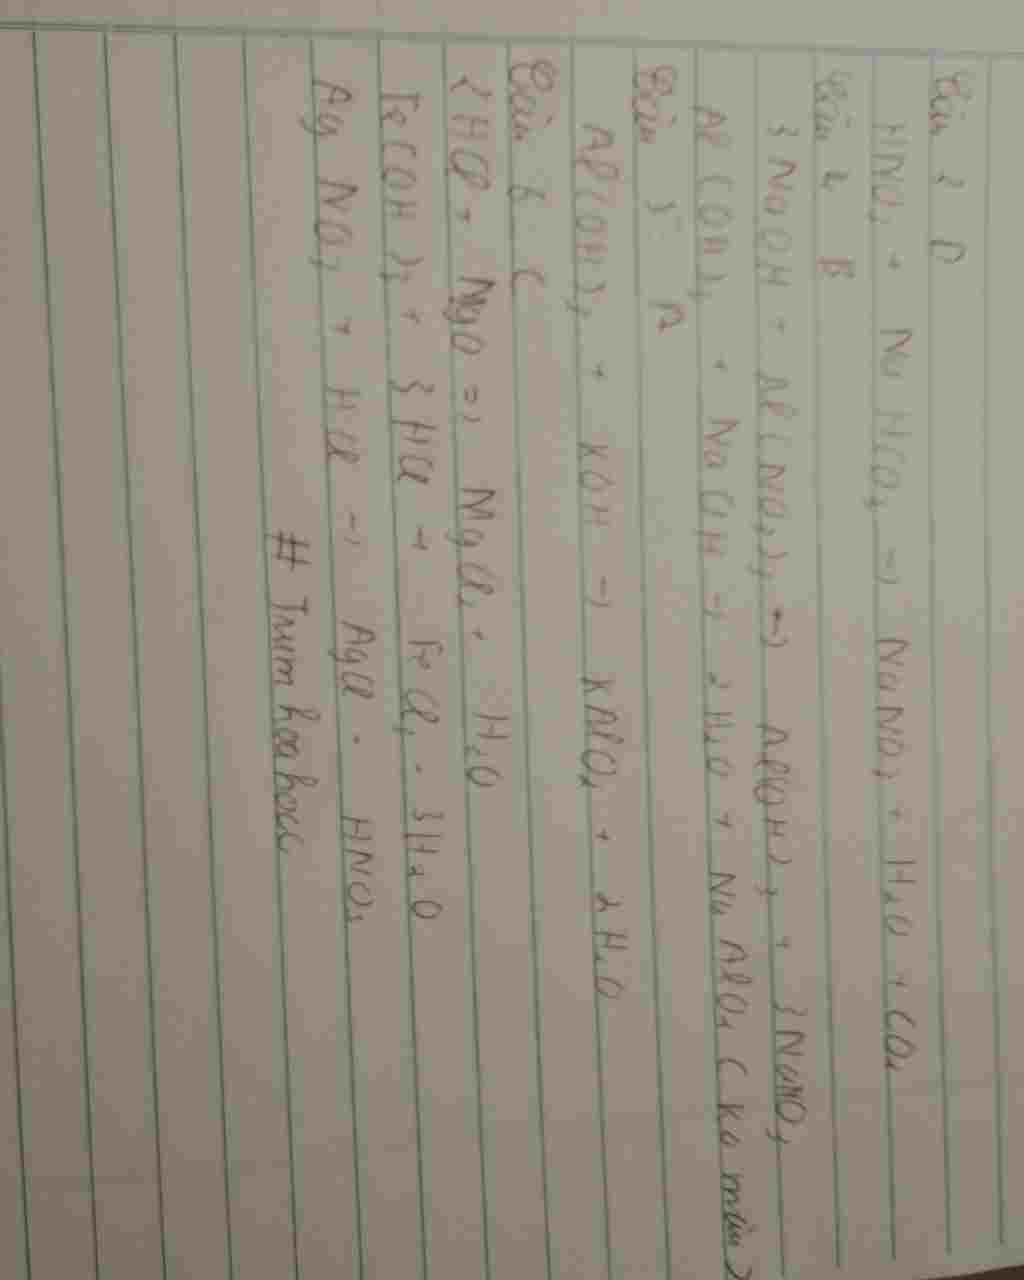 Câu 3 D
HNO3 + NaHCO3 → NaNO3 + H2O + CO2
Câu 4 B
3NaOH + Al(NO3)3 → Al(OH)3 + 3NaNO3
Al(OH)3 + NaOH → 2H2O + NaAlO2 (ko màu)
Câu 5 A
Al(OH)3 + KOH → KAlO2 + 2H2O
Câu 6 C
2HCl + MgO => MgCl2 + H2O
Fe(OH)3 + 3HCl → FeCl3 + 3H2O
AgNO3 + HCl → AgCl + HNO3
# Trumhoahoc